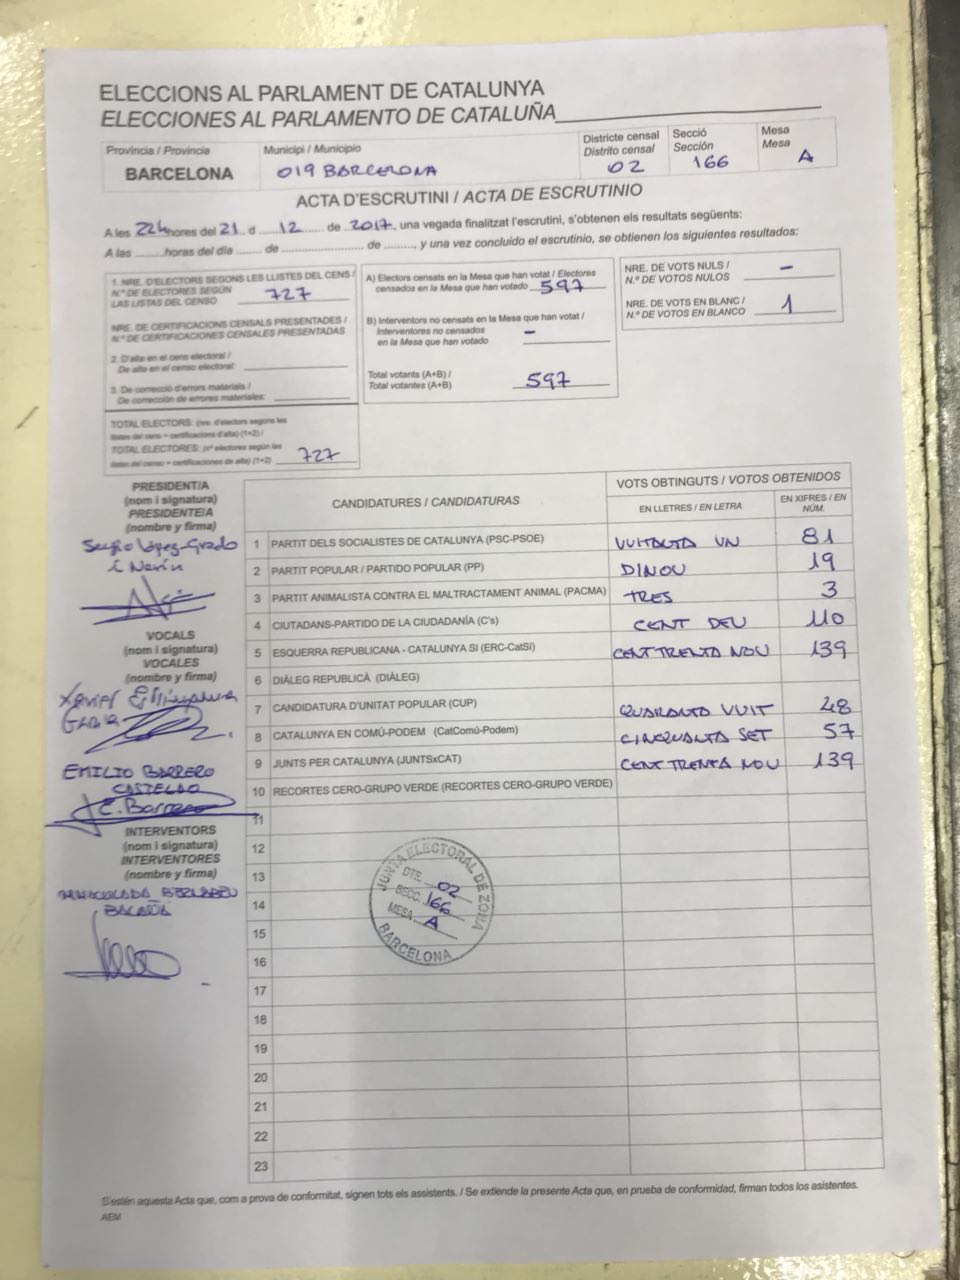 ELECCIONS AL PARLAMENT DE CATALUNYA
ELECCIONES AL PARLAMENTO DE CATALUÑA
Provincia / Provincia
BARCELONA
Municipi / Municipio
019 BARCELONA
Districte censal
Distrito censal
02
Secció
Sección
166
Mesa
Mesa
A
ACTA D'ESCRUTINI / ACTA DE ESCRUTINIO
A les 22h hores del 21 d 12 de 2017, una vegada finalitzat l'escrutini, s'obtenen els resultats següents:
A las ......... horas del día ........ de ........................ de ........, y una vez concluido el escrutinio, se obtienen los siguientes resultados:
1. NRE. D'ELECTORS SEGONS LES LLISTES DEL CENS /
N.º DE ELECTORES SEGÚN
LAS LISTAS DEL CENSO
727
NRE. DE CERTIFICACIONS CENSALS PRESENTADES /
N.º DE CERTIFICACIONES CENSALES PRESENTADAS
2. D'alta en el cens electoral /
De alta en el censo electoral:
3. De correcció d'errors materials /
De corrección de errores materiales:
TOTAL ELECTORS: (nre. d'electors segons les
llistes del cens + certificacions d'alta) (1+2) /
TOTAL ELECTORES: (nº electores según las
listas del censo + certificaciones de alta) (1+2)
727
A) Electors censats en la Mesa que han votat / Electores
censados en la Mesa que han votado 597
B) Interventors no censats en la Mesa que han votat /
Interventores no censados
en la Mesa que han votado
–
Total votants (A+B) /
Total votantes (A+B)
597
NRE. DE VOTS NULS /
N.º DE VOTOS NULOS
–
NRE. DE VOTS EN BLANC /
N.º DE VOTOS EN BLANCO
1
PRESIDENT/A
(nom i signatura)
PRESIDENTE/A
(nombre y firma)
Sergio López-Grado
i Nerín
VOCALS
(nom i signatura)
VOCALES
(nombre y firma)
EMILIO BARRERO
CASTELAO
E. Barrero
INTERVENTORS
(nom i signatura)
INTERVENTORES
(nombre y firma)
CANDIDATURES / CANDIDATURAS
VOTS OBTINGUTS / VOTOS OBTENIDOS
EN LLETRES / EN LETRA
EN XIFRES / EN NÚM.
1 PARTIT DELS SOCIALISTES DE CATALUNYA (PSC-PSOE) VUITANTA UN 81
2 PARTIT POPULAR / PARTIDO POPULAR (PP) DINOU 19
3 PARTIT ANIMALISTA CONTRA EL MALTRACTAMENT ANIMAL (PACMA) TRES 3
4 CIUTADANS-PARTIDO DE LA CIUDADANÍA (C's) CENT DEU 110
5 ESQUERRA REPUBLICANA - CATALUNYA SI (ERC-CatSí) CENT TRENTA NOU 139
6 DIÀLEG REPUBLICÀ (DIÀLEG)
7 CANDIDATURA D'UNITAT POPULAR (CUP) QUARANTA VUIT 48
8 CATALUNYA EN COMÚ-PODEM (CatComú-Podem) CINQUANTA SET 57
9 JUNTS PER CATALUNYA (JUNTSxCAT) CENT TRENTA NOU 139
10 RECORTES CERO-GRUPO VERDE (RECORTES CERO-GRUPO VERDE)
11
12
13
14
15
16
17
18
19
20
21
22
23
JUNTA ELECTORAL DE ZONA
DTE. 02
SECC. 166
MESA A
BARCELONA
S'estén aquesta Acta que, com a prova de conformitat, signen tots els assistents. / Se extiende la presente Acta que, en prueba de conformidad, firman todos los asistentes.
AEM